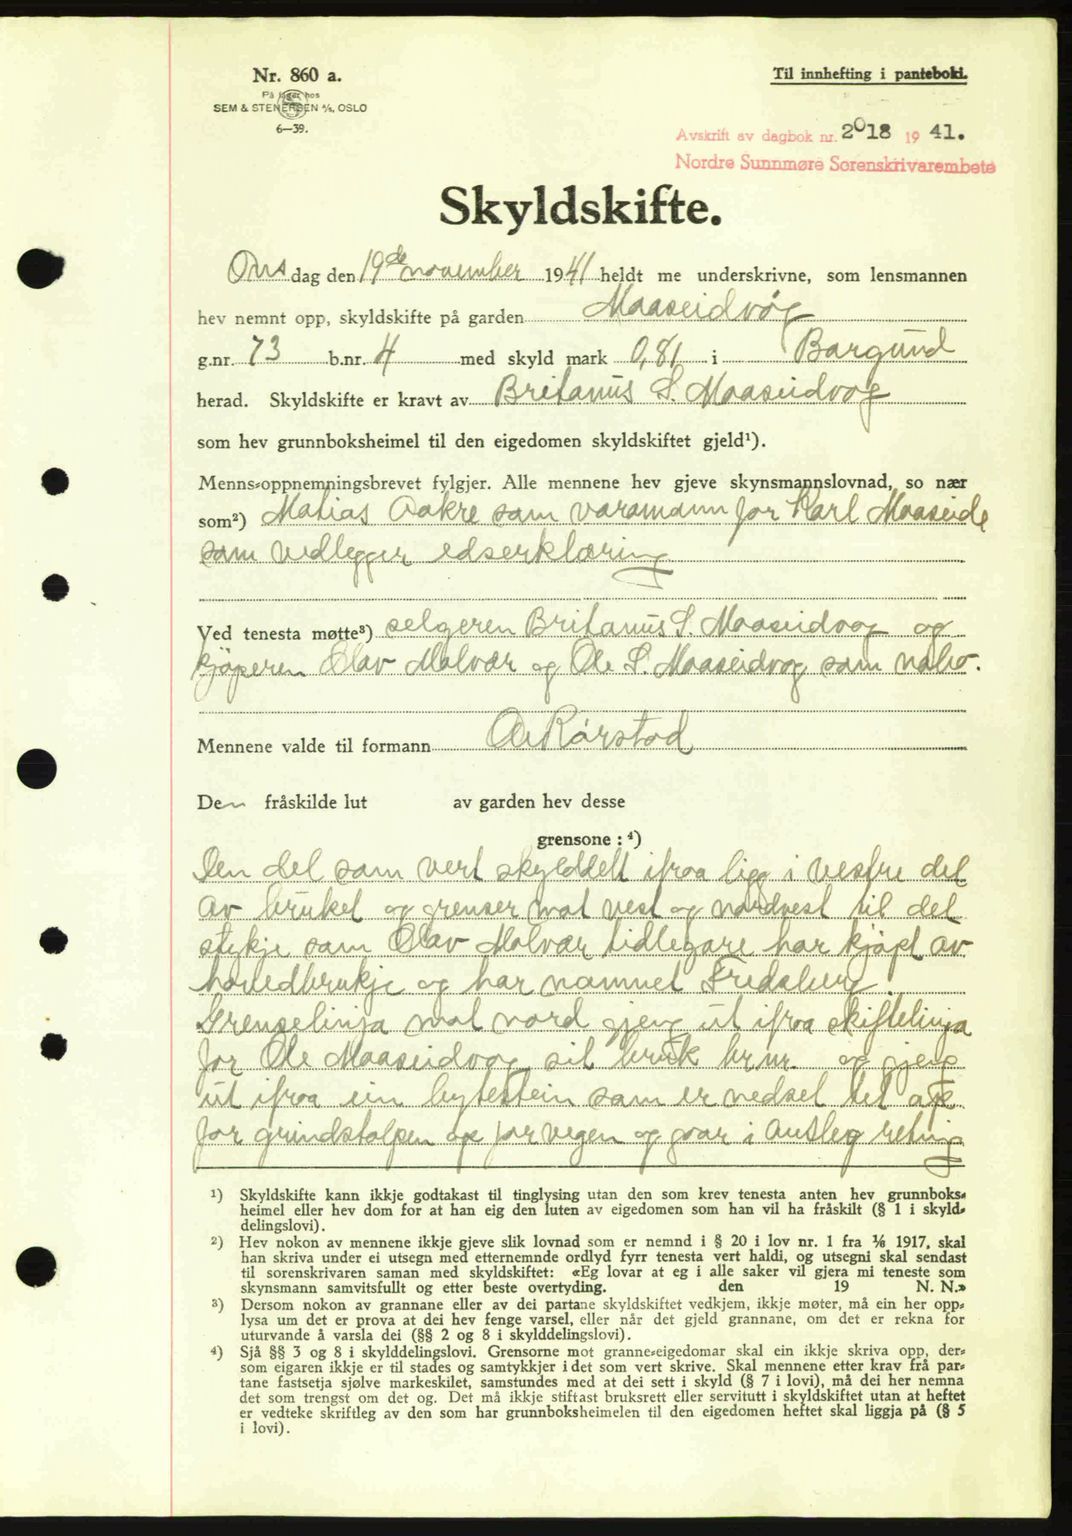 Nr. 860 a.
På lager hos
SEM & STENERSEN A/S, OSLO
6—39.
Til innhefting i panteboki.
Avskrift av dagbok nr. 2018 19 41.
Nordre Sunnmøre Sorenskrivarembete
Skyldskifte.
Ons dag den 19de november 1941 heldt me underskrivne, som lensmannen
hev nemnt opp, skyldskifte på garden Maaseidvåg
g.nr. 73 b.nr. 4 med skyld mark 0,81 i Borgund
herad. Skyldskifte er kravt av Britanus S. Maaseidvog
som hev grunnboksheimel til den eigedomen skyldskiftet gjeld¹).
Menns-oppnemningsbrevet fylgjer. Alle mennene hev gjeve skynsmannslovnad, so nær
som²) Matias Aakre som varamann for Karl Maaseide
som vedlegger edserklæring
Ved tenesta møtte³) selgeren Britanus S. Maaseidvog og
kjøperen Olav Molvær og Ole S. Maaseidvog som nabo.
Mennene valde til formann O. Rørstad
Den fråskilde lut av garden hev desse
grensone : ⁴)
Den del som vert skylddelt ifroa ligg i vestre del
av bruket og grenser mot vest og nordvest til det
stykje som Olav Molvær tidlegare har kjøpt av
hovedbrukje og har namnet Fredsberg.
Grenselinja mot nord gjeng ut ifroa skiftelinja
for Ole Maaseidvog sit bruk br.nr. og gjeng
ut ifroa ein bytestein som er nedset tet
for grindstolpen for vegen og goar i austleg retning
¹) Skyldskifte kann ikkje godtakast til tinglysing utan den som krev tenesta anten hev grunnboks-
heimel eller hev dom for at han eig den luten av eigedomen som han vil ha fråskilt (§ 1 i skyld-
delingslovi).
²) Hev nokon av mennene ikkje gjeve slik lovnad som er nemnd i § 20 i lov nr. 1 fra 1/6 1917, skal
han skriva under ei utsegn med etternemnde ordlyd fyrr tenesta vert haldi, og utsegni skal sendast
til sorenskrivaren saman med skyldskiftet: «Eg lovar at eg i alle saker vil gjera mi teneste som
skynsmann samvitsfullt og etter beste overtyding. den 19 N. N.»
³) Dersom nokon av grannane eller av dei partane skyldskiftet vedkjem, ikkje møter, må ein her opp-
lysa um det er prova at dei hev fenge varsel, eller når det gjeld grannane, om det er rekna for
uturvande å varsla dei (§§ 2 og 8 i skylddelingslovi).
⁴) Sjå §§ 3 og 8 i skylddelingslovi. Grensorne mot granne-eigedomar skal ein ikkje skriva opp, der-
som eigaren ikkje er til stades og samtykkjer i det som vert skrive. Skal mennene etter krav frå par-
tane fastsetja sjølve markeskilet, samstundes med at dei sett i skyld (§ 7 i lovi), må dei her nemna
det som trengst om det og. Det må ikkje stiftast bruksrett eller servitutt i skyldskiftet utan at heftet
er vedteke skriftleg av den som har grunnboksheimelen til den eigedomen heftet skal liggja på (§ 5
i lovi).